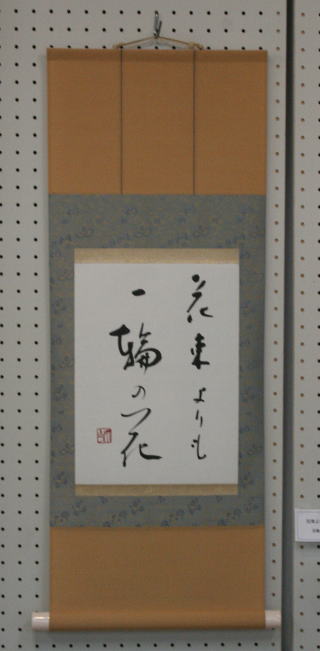 花束よりも
一輪の花